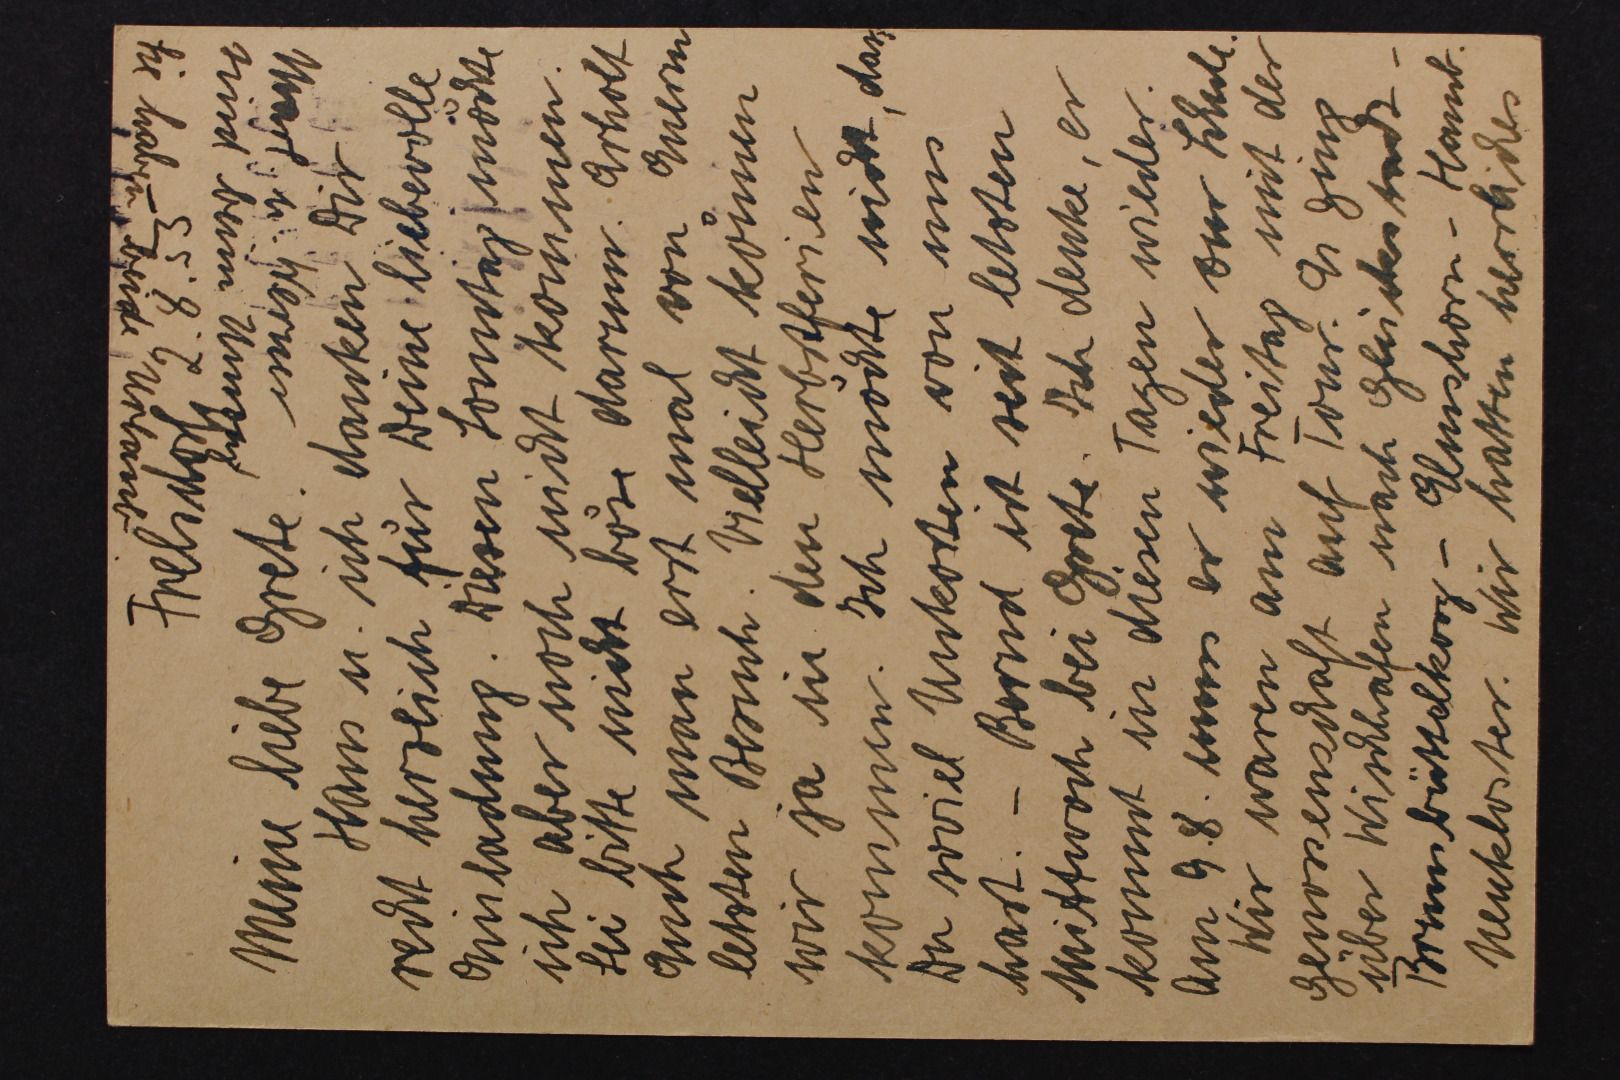 Frelsdorf 2.8.53
Meine liebe Grete.
Hans u. ich danken Dir
recht herzlich für Deine liebevolle
Einladung. Diesen Sonntag möchte
ich aber noch nicht kommen.
Sei bitte nicht böse darum. Erholt
Euch man erst mal von Euern
letzten Besuch. Vielleicht können
wir ja in den Herbstferien
kommen. Ich möchte nicht, dass
Du soviel Unkosten von uns
hast. – Bernd ist seit letzten
Mittwoch bei Grete. Ich denke, er
kommt in diesen Tagen wieder.
Am 9.8. muss er wieder zur Schule.
Wir waren am Freitag mit der
Genossenschaft auf Tour. Es ging
über Wischhafen nach Glückstadt –
Brunsbüttelkoog – Elmshorn – Hamb.
Neukloster. Wir hatten herrliches
Sie haben beide Urlaub.
sind beim